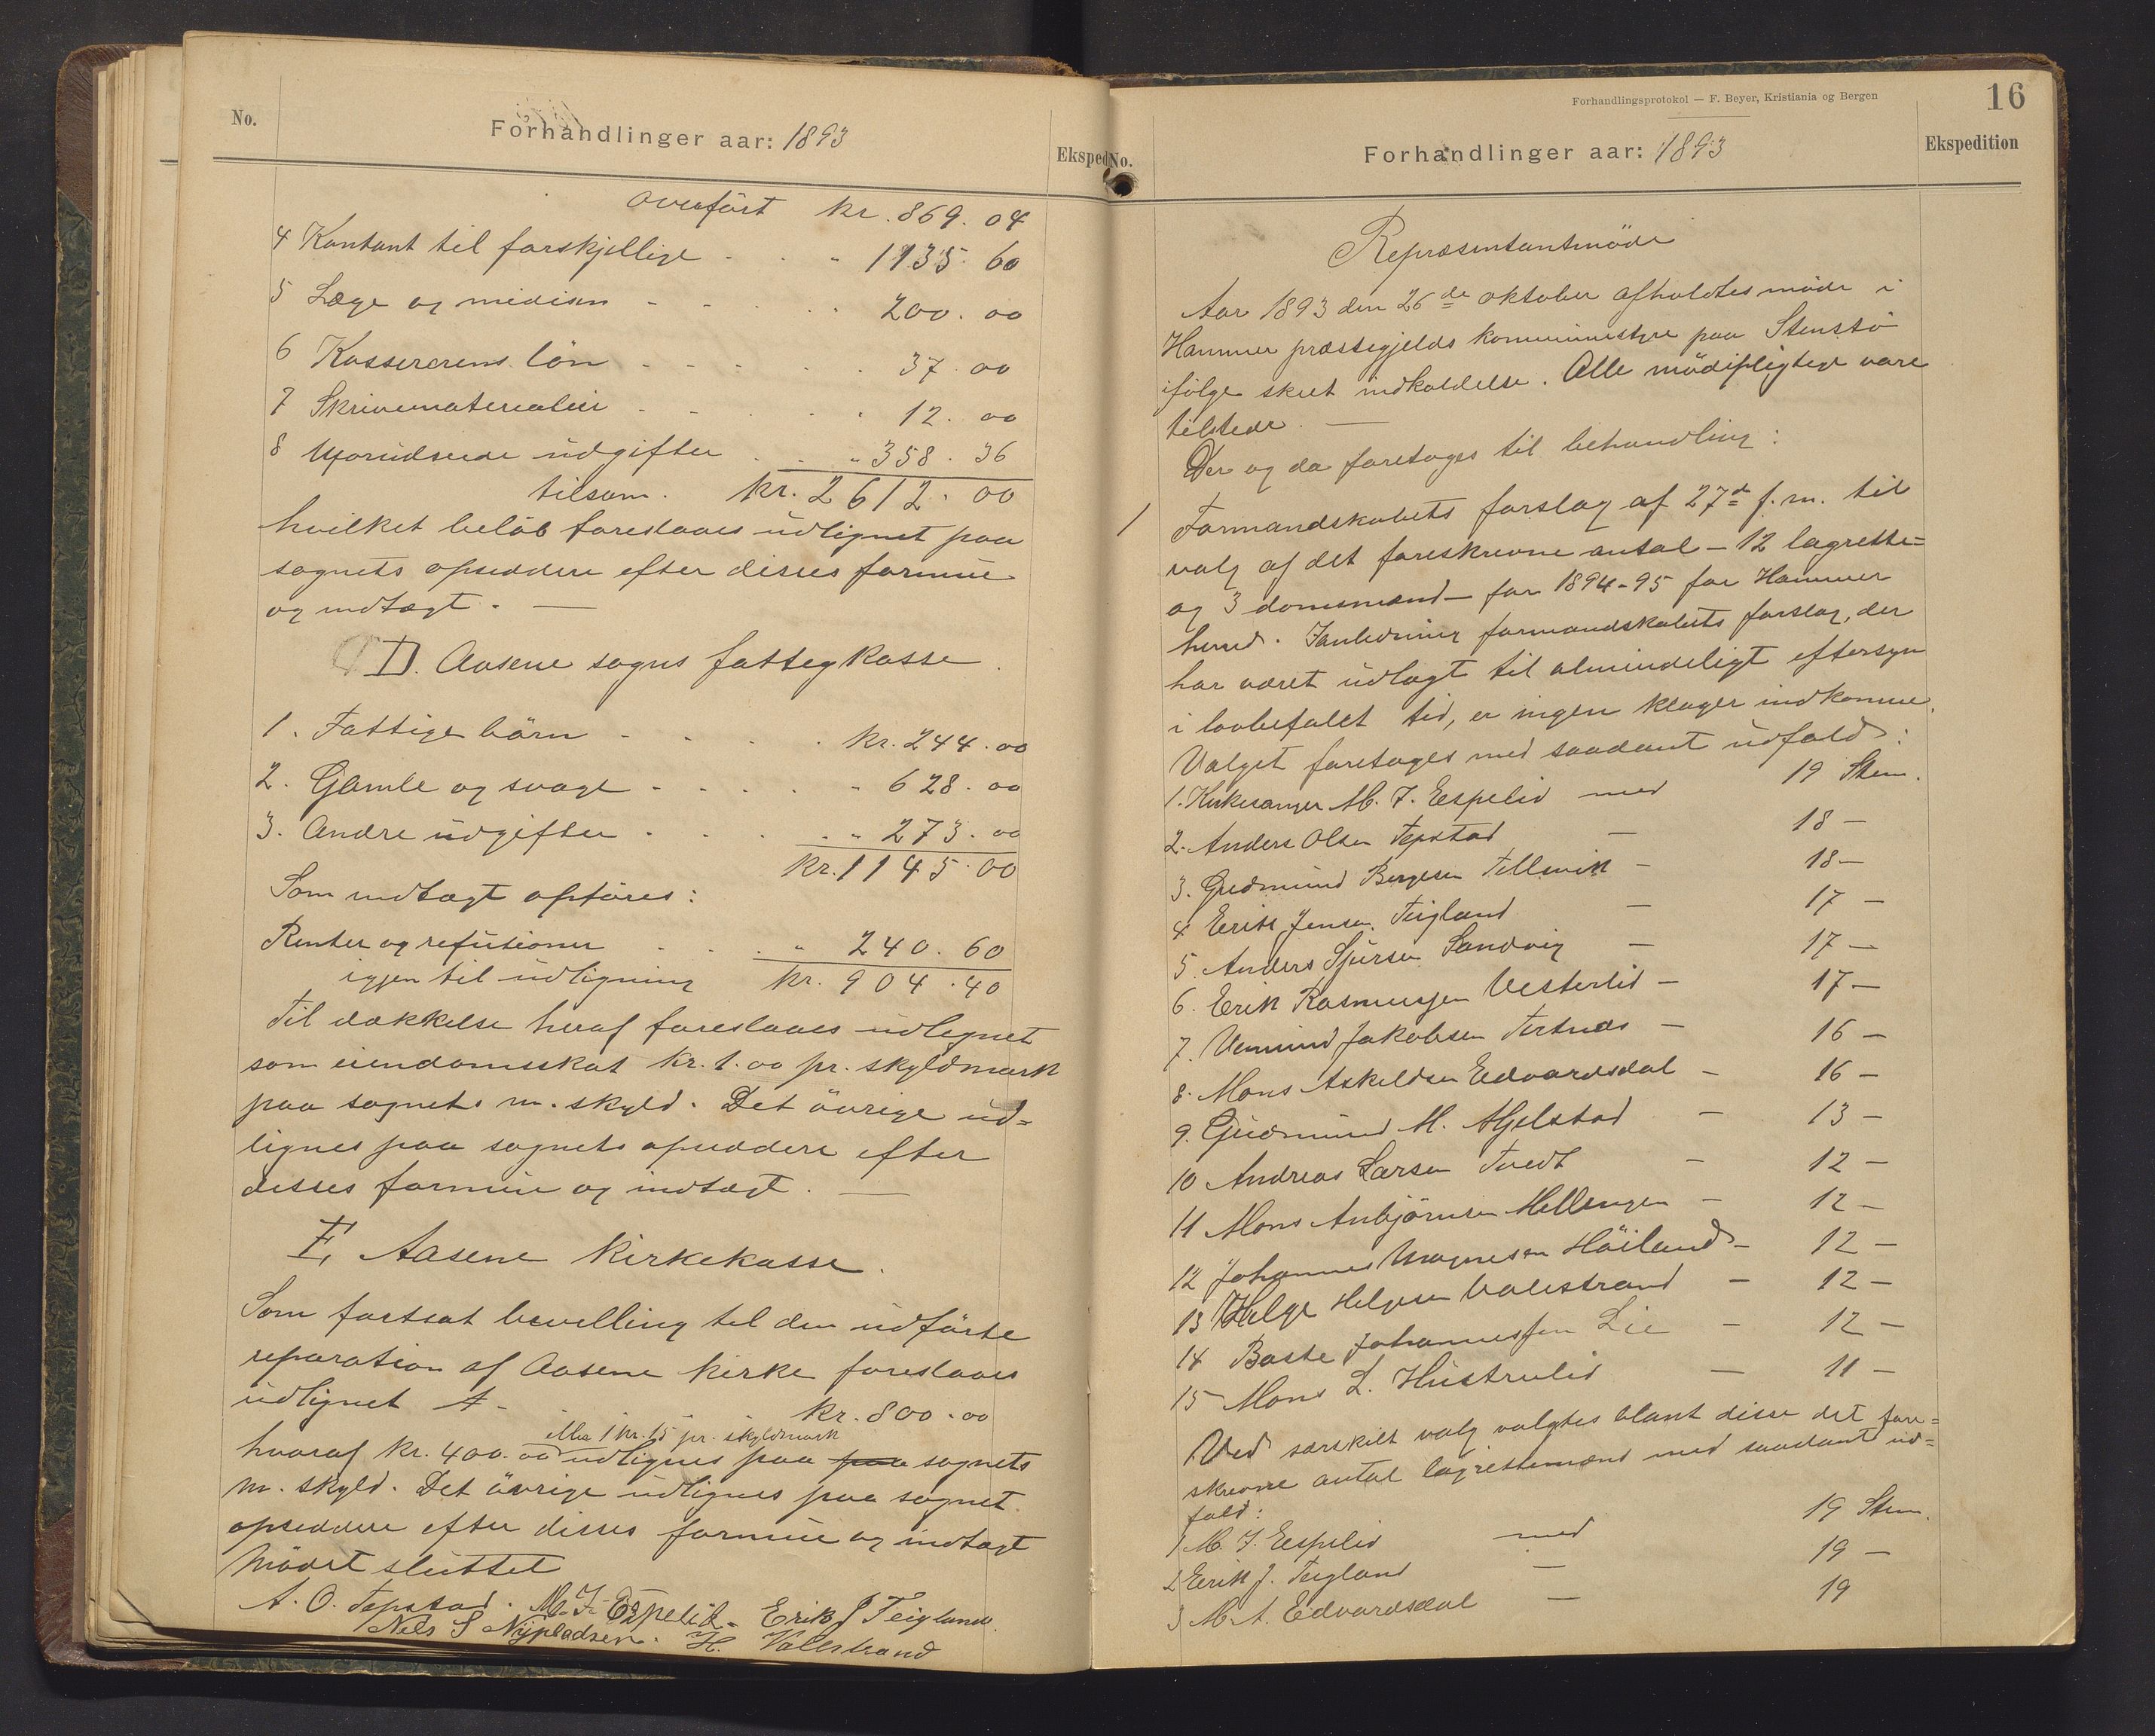 No.
Forhandlinger aar: 1893
Eksped
overført kr. 869. 04
4 Kontant til forskjellige - - " 1135. 60
5 Læge og medisin - - - - 200. 00
6 Kassererens lön - - - - 37. 00
7 Skrivematerialier - - - - 12. 00
8 Uforudseede udgifter - - " 358. 36
tilsam. kr. 2612. 00
hvilket belöb foreslaaes udlignet paa
sognets opsiddere efter disses formue
og indtægt. —
D. Aasene sogns fattigkasse.
1. Fattige börn - - - - kr. 244. 00
2. Gamle og svage - - - - " 628. 00
3. Andre udgifter - - - - " 273. 00
kr. 1145. 00
Som indtægt opföres:
Renter og refusioner - - - " 240. 60
igjen til udligning kr. 904. 40
Til dækkelse heraf foreslaaes udlignet
som eiendomsskat kr. 1.00 pr. skyldmark
paa sognets m. skyld. Det övrige ud=
lignes paa sognets opsiddere efter
disses formue og indtægt. —
E, Aasene Kirkekasse.
Som fortsat bevilling til den udförte
reparation af Aasene kirke foreslaaes
udlignet kr. 800. 00
eller 1 kr. 15 pr. skyldmark
hvoraf kr. 400. 00 udlignes paa paa sognets
m. skyld. Det övrige udlignes paa sognet
opsiddere efter disses formue og indtægt
Mödet sluttet
A. O. Tepstad. M. J. Espelid. Erik J Teigland.
Nils S Nypladsen. H. Valestrand
Forhandlingsprotokol — F. Beyer, Kristiania og Bergen
16
No.
Forhandlinger aar: 1893
Ekspedition
Repræsentantmöde
Aar 1893 den 26de oktober afholdtes möde i
Hammer præstegjelds kommunestyre paa Stenstö
ifölge skeet indkaldelse. Alle mödepligtige vare
tilstede. —
Der og da foretoges til behandling:
1 Formandskabets forslag af 27de f. m. til
valg af det foreskrevne antal — 12 lagrette=
og 3 domsmænd — for 1894-95 for Hammer
herred. Ianledning formandskabets forslag, der
har været udlagt til almindeligt eftersyn
i lovbefalet tid, er ingen klager indkomne.
Valget foretoges med saadant udfald:
1. Kirkesanger M. J. Espelid med 19 Stem.
2. Anders Olsen Tepstad — 18 —
3. Gudmund Børgesen Tellevik — 18 —
4 Erik Jensen Teigland — 17 —
5. Anders Sjursen Sandvig — 17 —
6. Erik Rasmussen Vesterlid — 17 —
7. Vemund Jakobsen Tertnæs — 16 —
8. Mons Askeldsen Edvardsdal — 16 —
9. Gjudmund M. Mjelstad — 13 —
10 Andreas Larsen Tvedt — 12 —
11 Mons Anbjörnsen Hellengen — 12 —
12 Johannes Magnesen Höiland — 12 —
13 Helge Helgesen Valestrand — 12 —
14 Baste Johannessen Lie — 12 —
15 Mons L. Hustrulid — 11 —
Ved særskilt valg valgtes blant disse det fore=
skrevne antal lagrettemænd med saadant ud=
fald:
1 M. J. Espelid med 19 Stem.
2 Erik J. Teigland — 19 —
3 M. A. Edvardsdal — 19